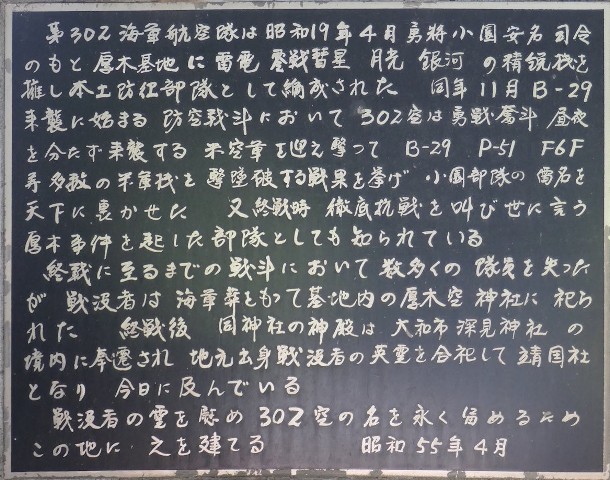 第302海軍航空隊は昭和19年4月勇将小園安名司令
のもと厚木基地に雷電 零戦 彗星 月光 銀河 の精鋭機を
擁し本土防任部隊として編成された 同年11月B-29
来襲に始まる防空戦斗において302空は勇戦奮斗 昼夜
を分たず来襲する 米空軍を迎え撃って B-29 P-51 F6F
等多数の米軍機を撃墜破する戦果を挙げ 小園部隊の雷名を
天下に轟かせた 又終戦時 徹底抗戦を叫び世に言う
厚木事件を起した部隊としても知られている
終戦に至るまでの戦斗において数多くの隊員を失った
が 戦没者は海軍葬をもって基地内の厚木空神社に祀ら
れた 終戦後 同神社の神殿は大和市深見神社 の
境内に奉遷され 地元出身戦没者の英霊を合祀して靖国社
となり 今日に及んでいる
戦没者の霊を慰め302空の名を永く留めるため
この地に 之を建てる 昭和55年4月